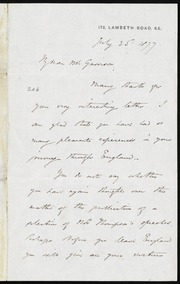 172, LAMBETH ROAD, S.E.
July 25th 1877
My dear Mr Garrison,
Many thanks for
your very interesting letter. I
am glad that you have had so
many pleasant experiences in your
passage through England.
You do not say whether
you have again thought over the
matter of the publication of a
selection of Mr Thompson's speeches,
perhaps before you leave England
you will give me your